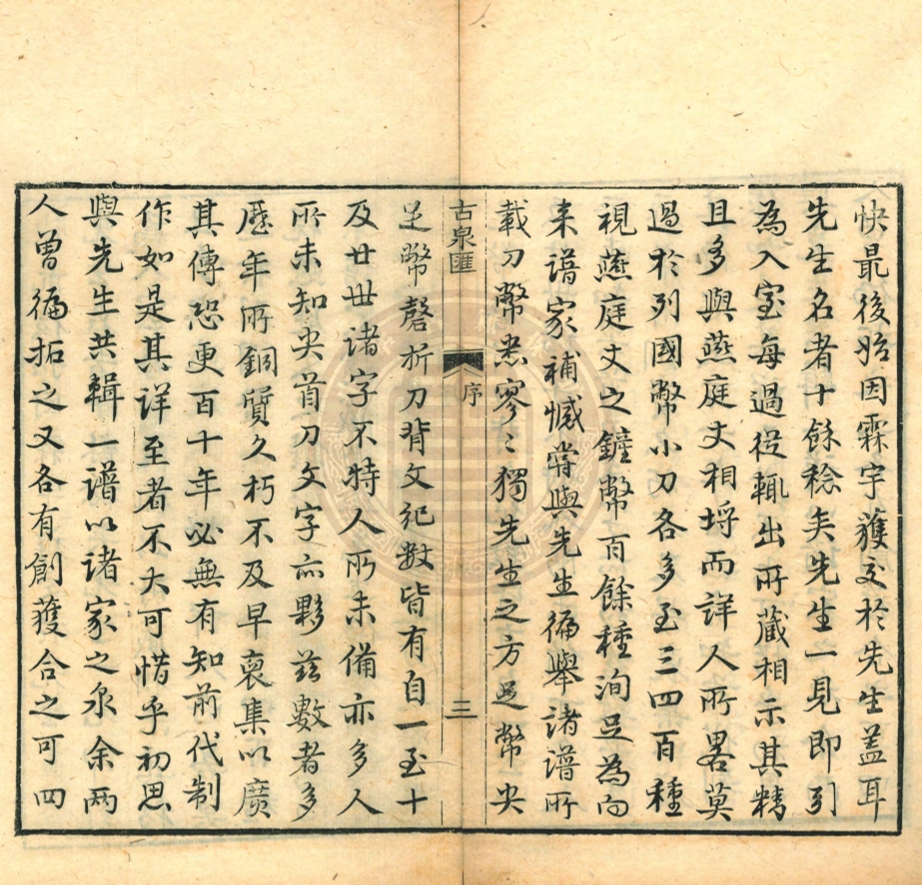 快最後始因霖宇獲交於先生蓋耳
先生名者十餘稔矣先生一見即引
為入室每過從輒出所藏相示其精
且多與燕庭丈相埒而詳人所畧莫
過於列國幣小刀各多至三四百種
視燕庭丈之鏟幣百餘種洵足為向
來譜家補憾嘗與先生徧舉諸譜所
載刀幣悉寥〻獨先生之方足幣尖
古泉匯
序
三
足幣磬折刀背文紀數皆有自一至十
及廿丗諸字不特人所未備亦多人
所未知尖首刀文字亦夥茲數者多
歷年所銅質久朽不及早裒集以廣
其傳恐更百十年必無有知前代制
作如是其詳至者不大可惜乎初思
與先生共輯一譜以諸家之泉余兩
人曾徧拓之又各有創獲合之可四